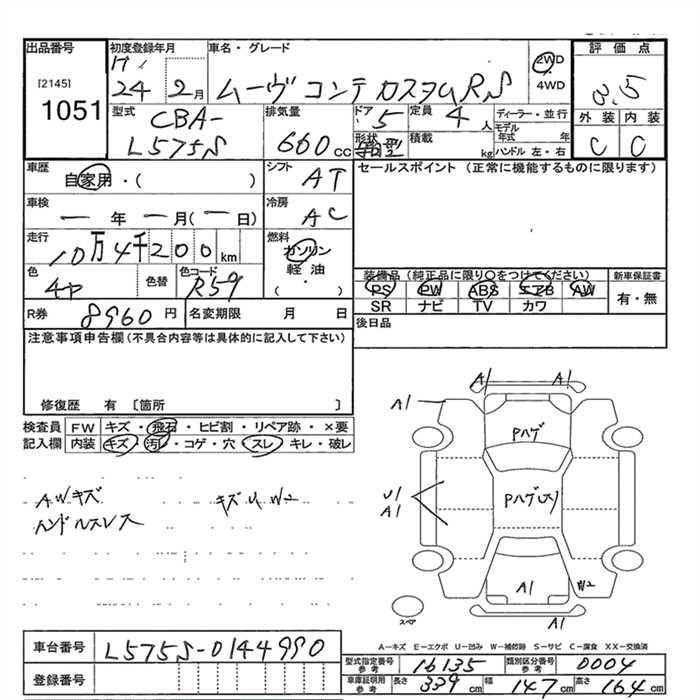 出品番号 初度登録年月 車名・グレード 評価点
[2145] 1051
H 24年 2月 ムーヴ コンテ カスタム RS 2WD・4WD 3.5
型式 排気量 ドア 定員 ディーラー・並行 外装 内装
CBA-L575S 660cc 5 4人 モデル年式 年 C C
形状 箱型 積載 kg ハンドル 左・右
車歴 シフト セールスポイント(正常に機能するものに限ります)
自家用・( ) AT
車検 冷房
ー年ー月(ー日) AC
走行 燃料
10万4千200km ガソリン
軽油
・( )
色 色替 色コード 装備品(純正品に限り〇をつけてください) 新車保証書
R59 PS PW ABS エアB AW 有・無
SR ナビ TV カワ
R券 8960円 名変期限 月 日 後日品
注意事項申告欄(不具合内容等は具体的に記入して下さい)
修復歴 有〔箇所 〕
検査員 FW キズ・飛石・ヒビ割・リペア跡・×要
記入欄 内装 キズ・汚レ・コゲ・穴・スレ・キレ・破レ
AWキズ キズU W2
ハンドルスレス
A1 A1
A1
Pハゲ
U1
A1
Pハゲ(ス)
A1 W2
スペア A1
A-キズ E-エクボ U-凹み W-補修跡 S-サビ C-腐食 XX-交換済
車台番号 L575S-0144990
型式指定番号 参考 16135 類別区分番号 参考 0004
登録番号
車庫証明用 参考 長さ 339cm 幅 147cm 高さ 164cm